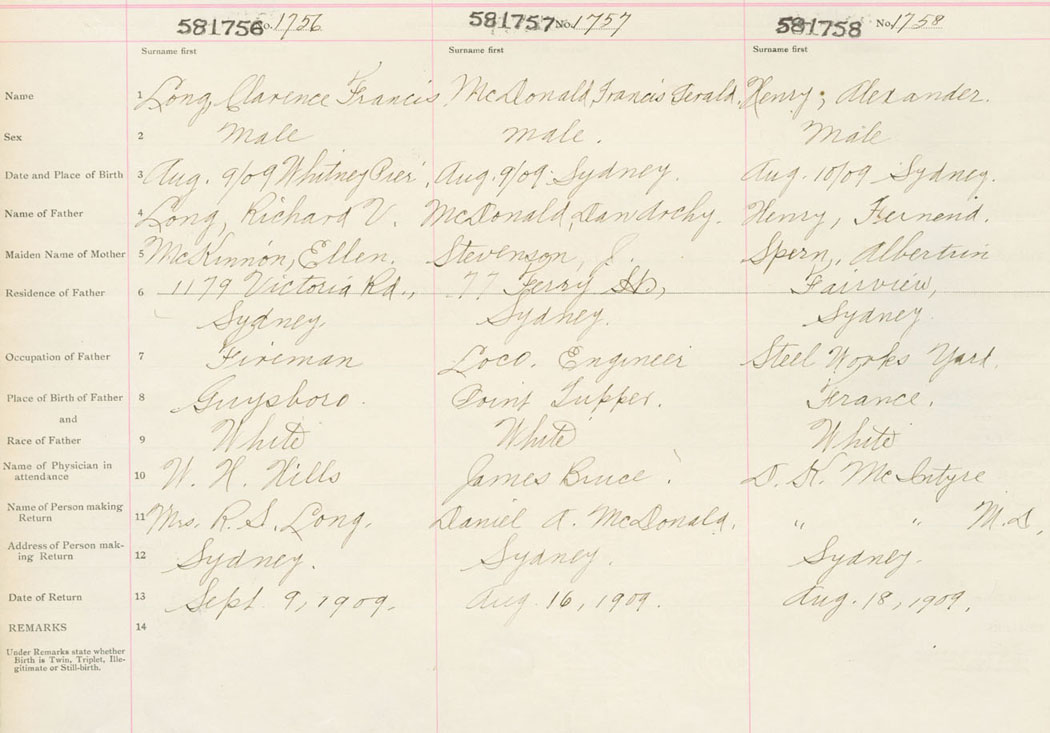 581756 No. 1756 581757 No. 1757 581758 No. 1758
Surname first Surname first Surname first
Name 1 Long, Clarence Francis McDonald, Francis Gerald. Henry, Alexander.
Sex 2 Male Male. Male
Date and Place of Birth 3 Aug. 9/09 Whitney Pier, Aug. 9/09 Sydney. Aug. 10/09 Sydney.
Name of Father 4 Long, Richard V. McDonald, Dan Archy. Henry,
Maiden Name of Mother 5 McKinnon, Ellen. Stevenson, J. Spern, Albertin
Residence of Father 6 1179 Victoria Rd., 77 Ferry St., Fairview,
Sydney. Sydney. Sydney.
Occupation of Father 7 Fireman Loco. Engineer Steel Works Yard.
Place of Birth of Father 8 Guysboro. Point Tupper. France.
and
Race of Father 9 White White White
Name of Physician in
attendance 10 W. H. Hills James Bruce. D. K. McIntyre
Name of Person making
Return 11 Mrs. R. S. Long. Daniel A. McDonald. " " M.D.
Address of Person mak-
ing Return 12 Sydney. Sydney. Sydney.
Date of Return 13 Sept. 9, 1909. Aug. 16, 1909. Aug. 18, 1909.
REMARKS 14
Under Remarks state whether
Birth is Twin, Triplet, Ille-
gitimate or Still-birth.